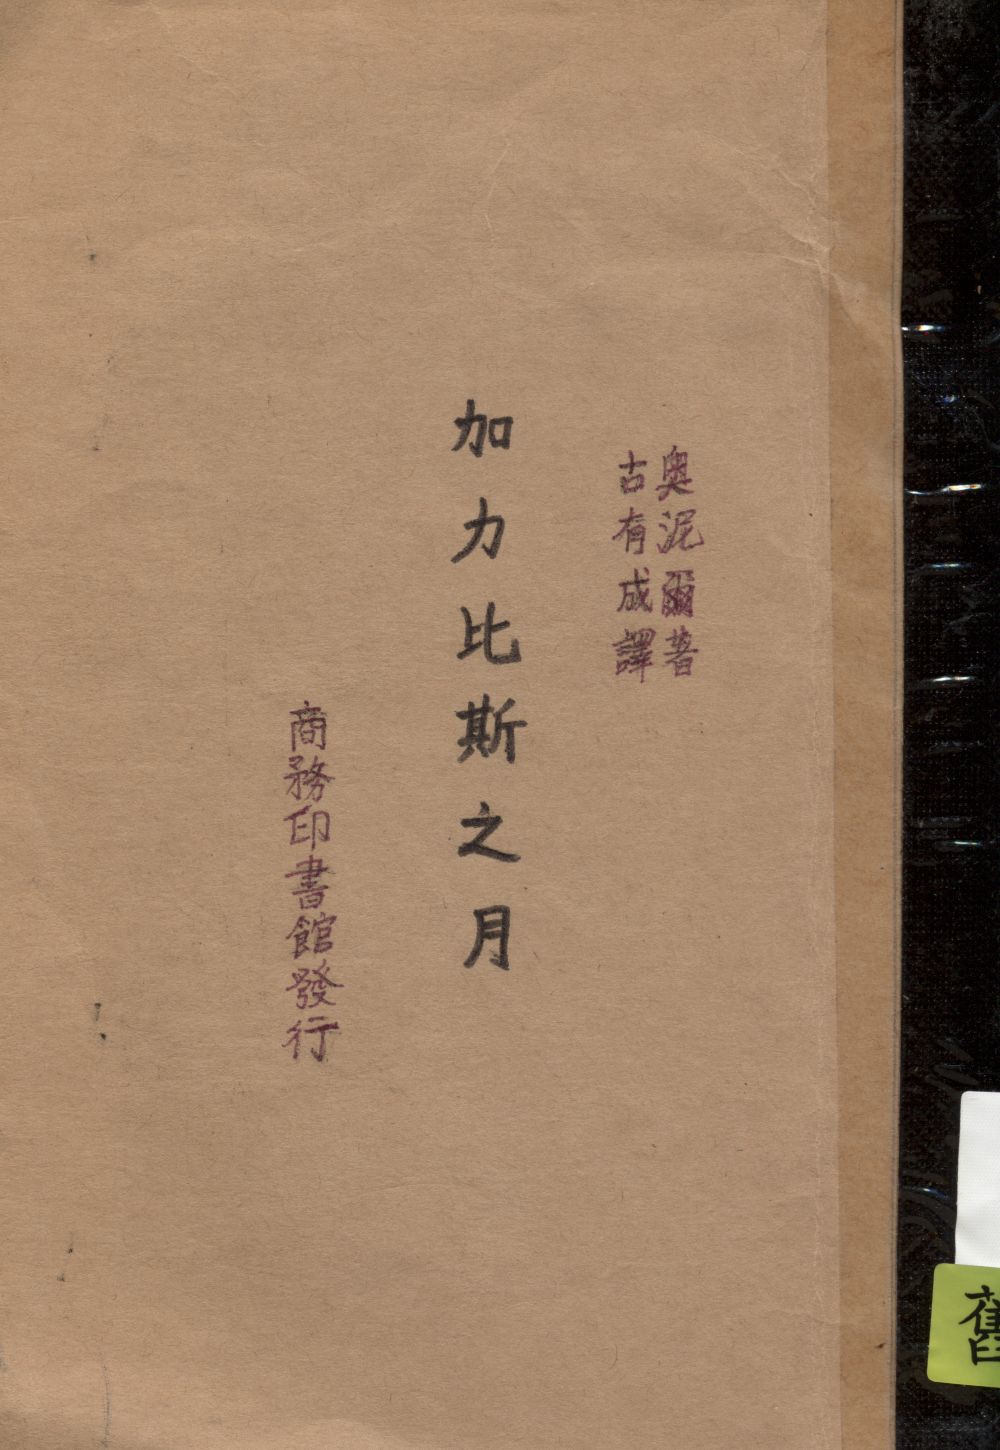 奧泥爾著
古有成譯
加力比斯之月
商務印書館發行
舊